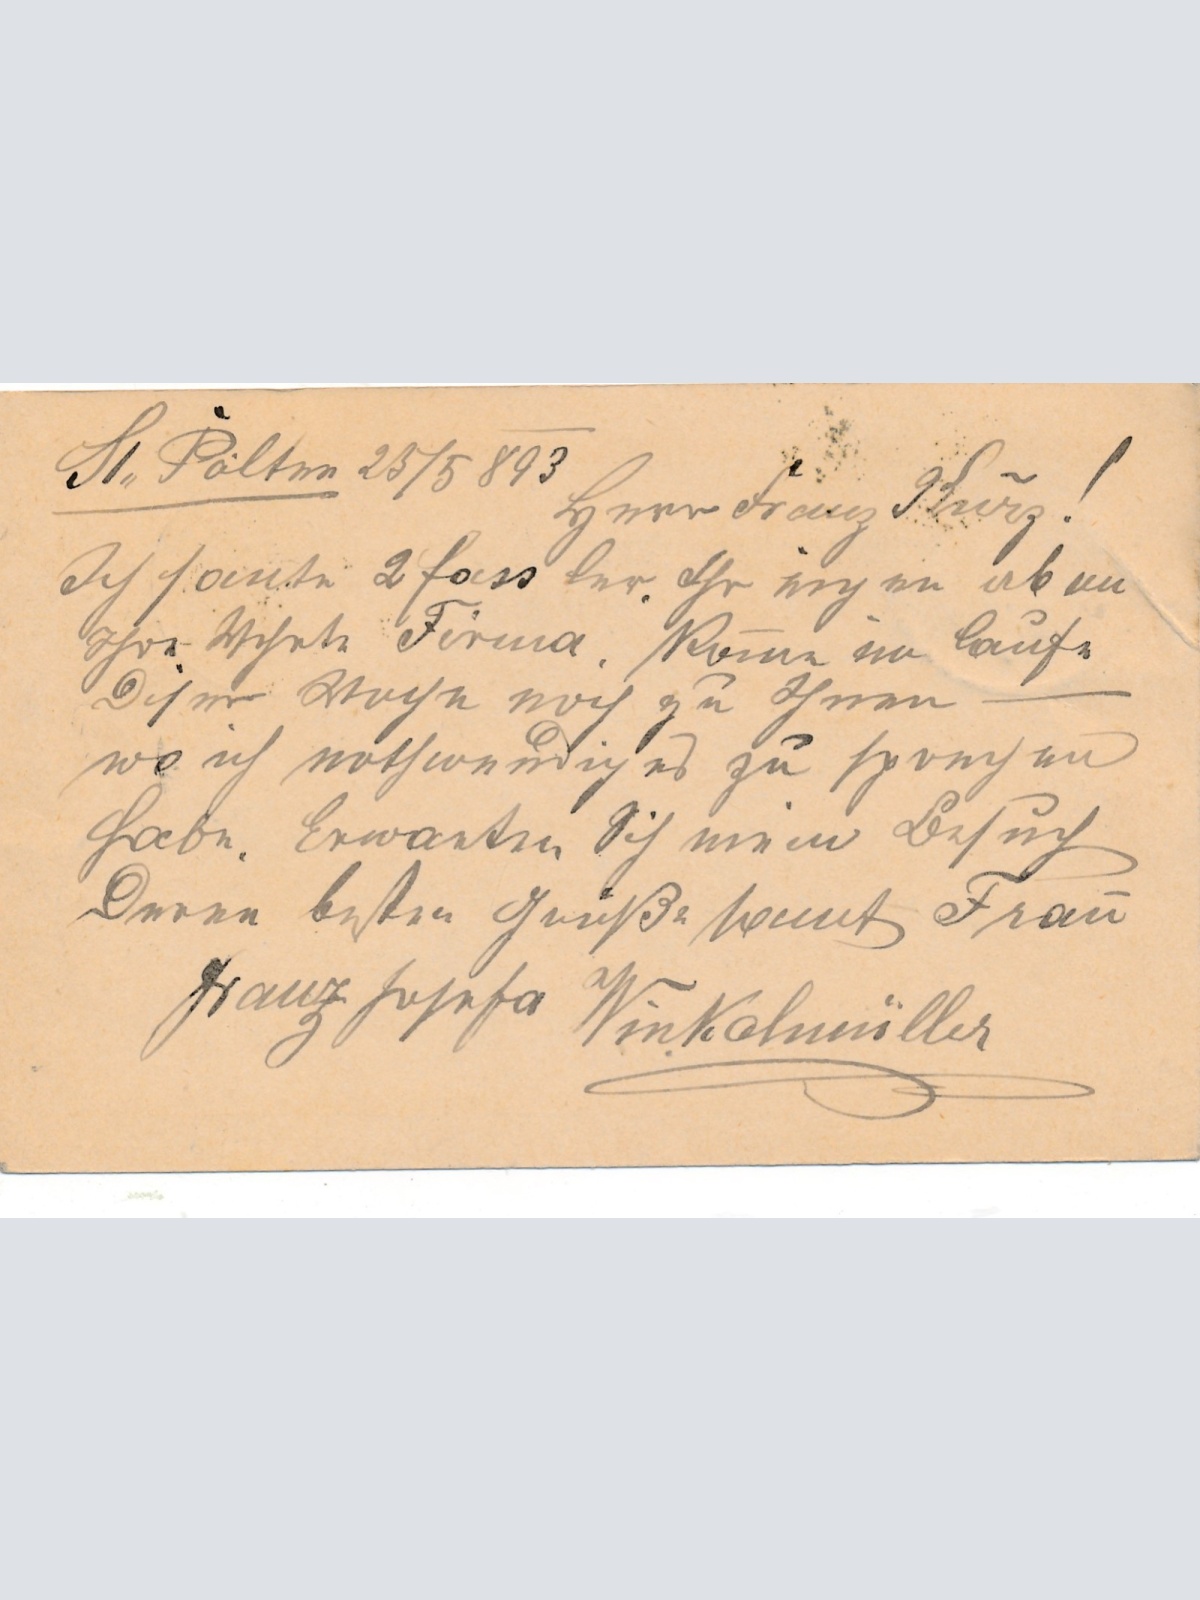 St. Pölten 25/5 893
Herr Franz Kurz!
Ich sante 2 fass ler. Ihr eigen ab an
Ihre Wehrte Firma. Kom̄e im laufe
Diser Woche noch zu Ihnen —
wo ich nothwendiges zu sprechen
habe. Erwarten Sich mein Besuch
Deren besten Grüße samt Frau
Franz Josefa Winkelmüller